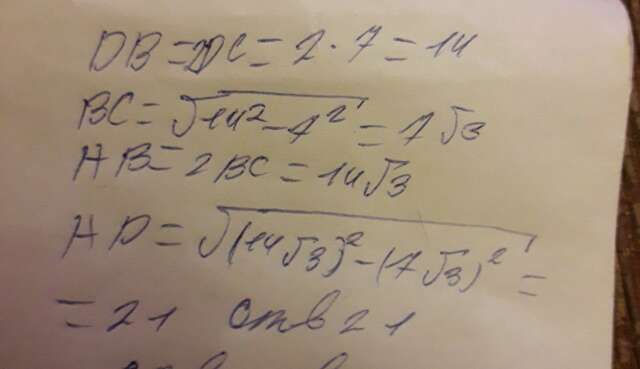 DB=2DC=2·7=14
BC=√14²-7²=7√3
AB=2BC=14√3
AD=√(14√3)²-(7√3)²=
=21 отв 21